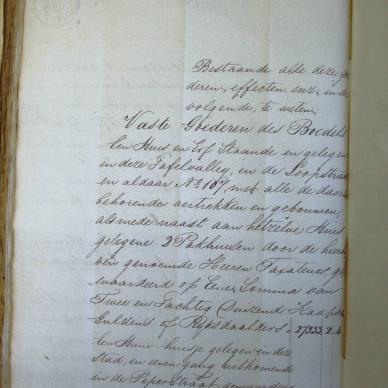 Bestaande alle deze goe
deren, effecten enz., in de
volgende, te weten,
Vaste Goederen des Boedels
Een Huis en Erf Staande en gelegen
in deze Tafelvalley, in de Loopstraat
en aldaar No 107, met alle de daarin
behorende vertrekken en gebouwen,
alsmede naast aan hetzelve Huis
gelegene 2 Pakhuizen door de hierbo
ven genoemde Heeren Taxateurs ge
waardeerd op Eene Somma van
Twee en Tachtig Duizend Kaapsche
Guldens of Ryksdaalders 27333,,2,,4
Een Huis huisje gelegen in deze
Stad, in eenen gang uitkomende
in de Peperstraat